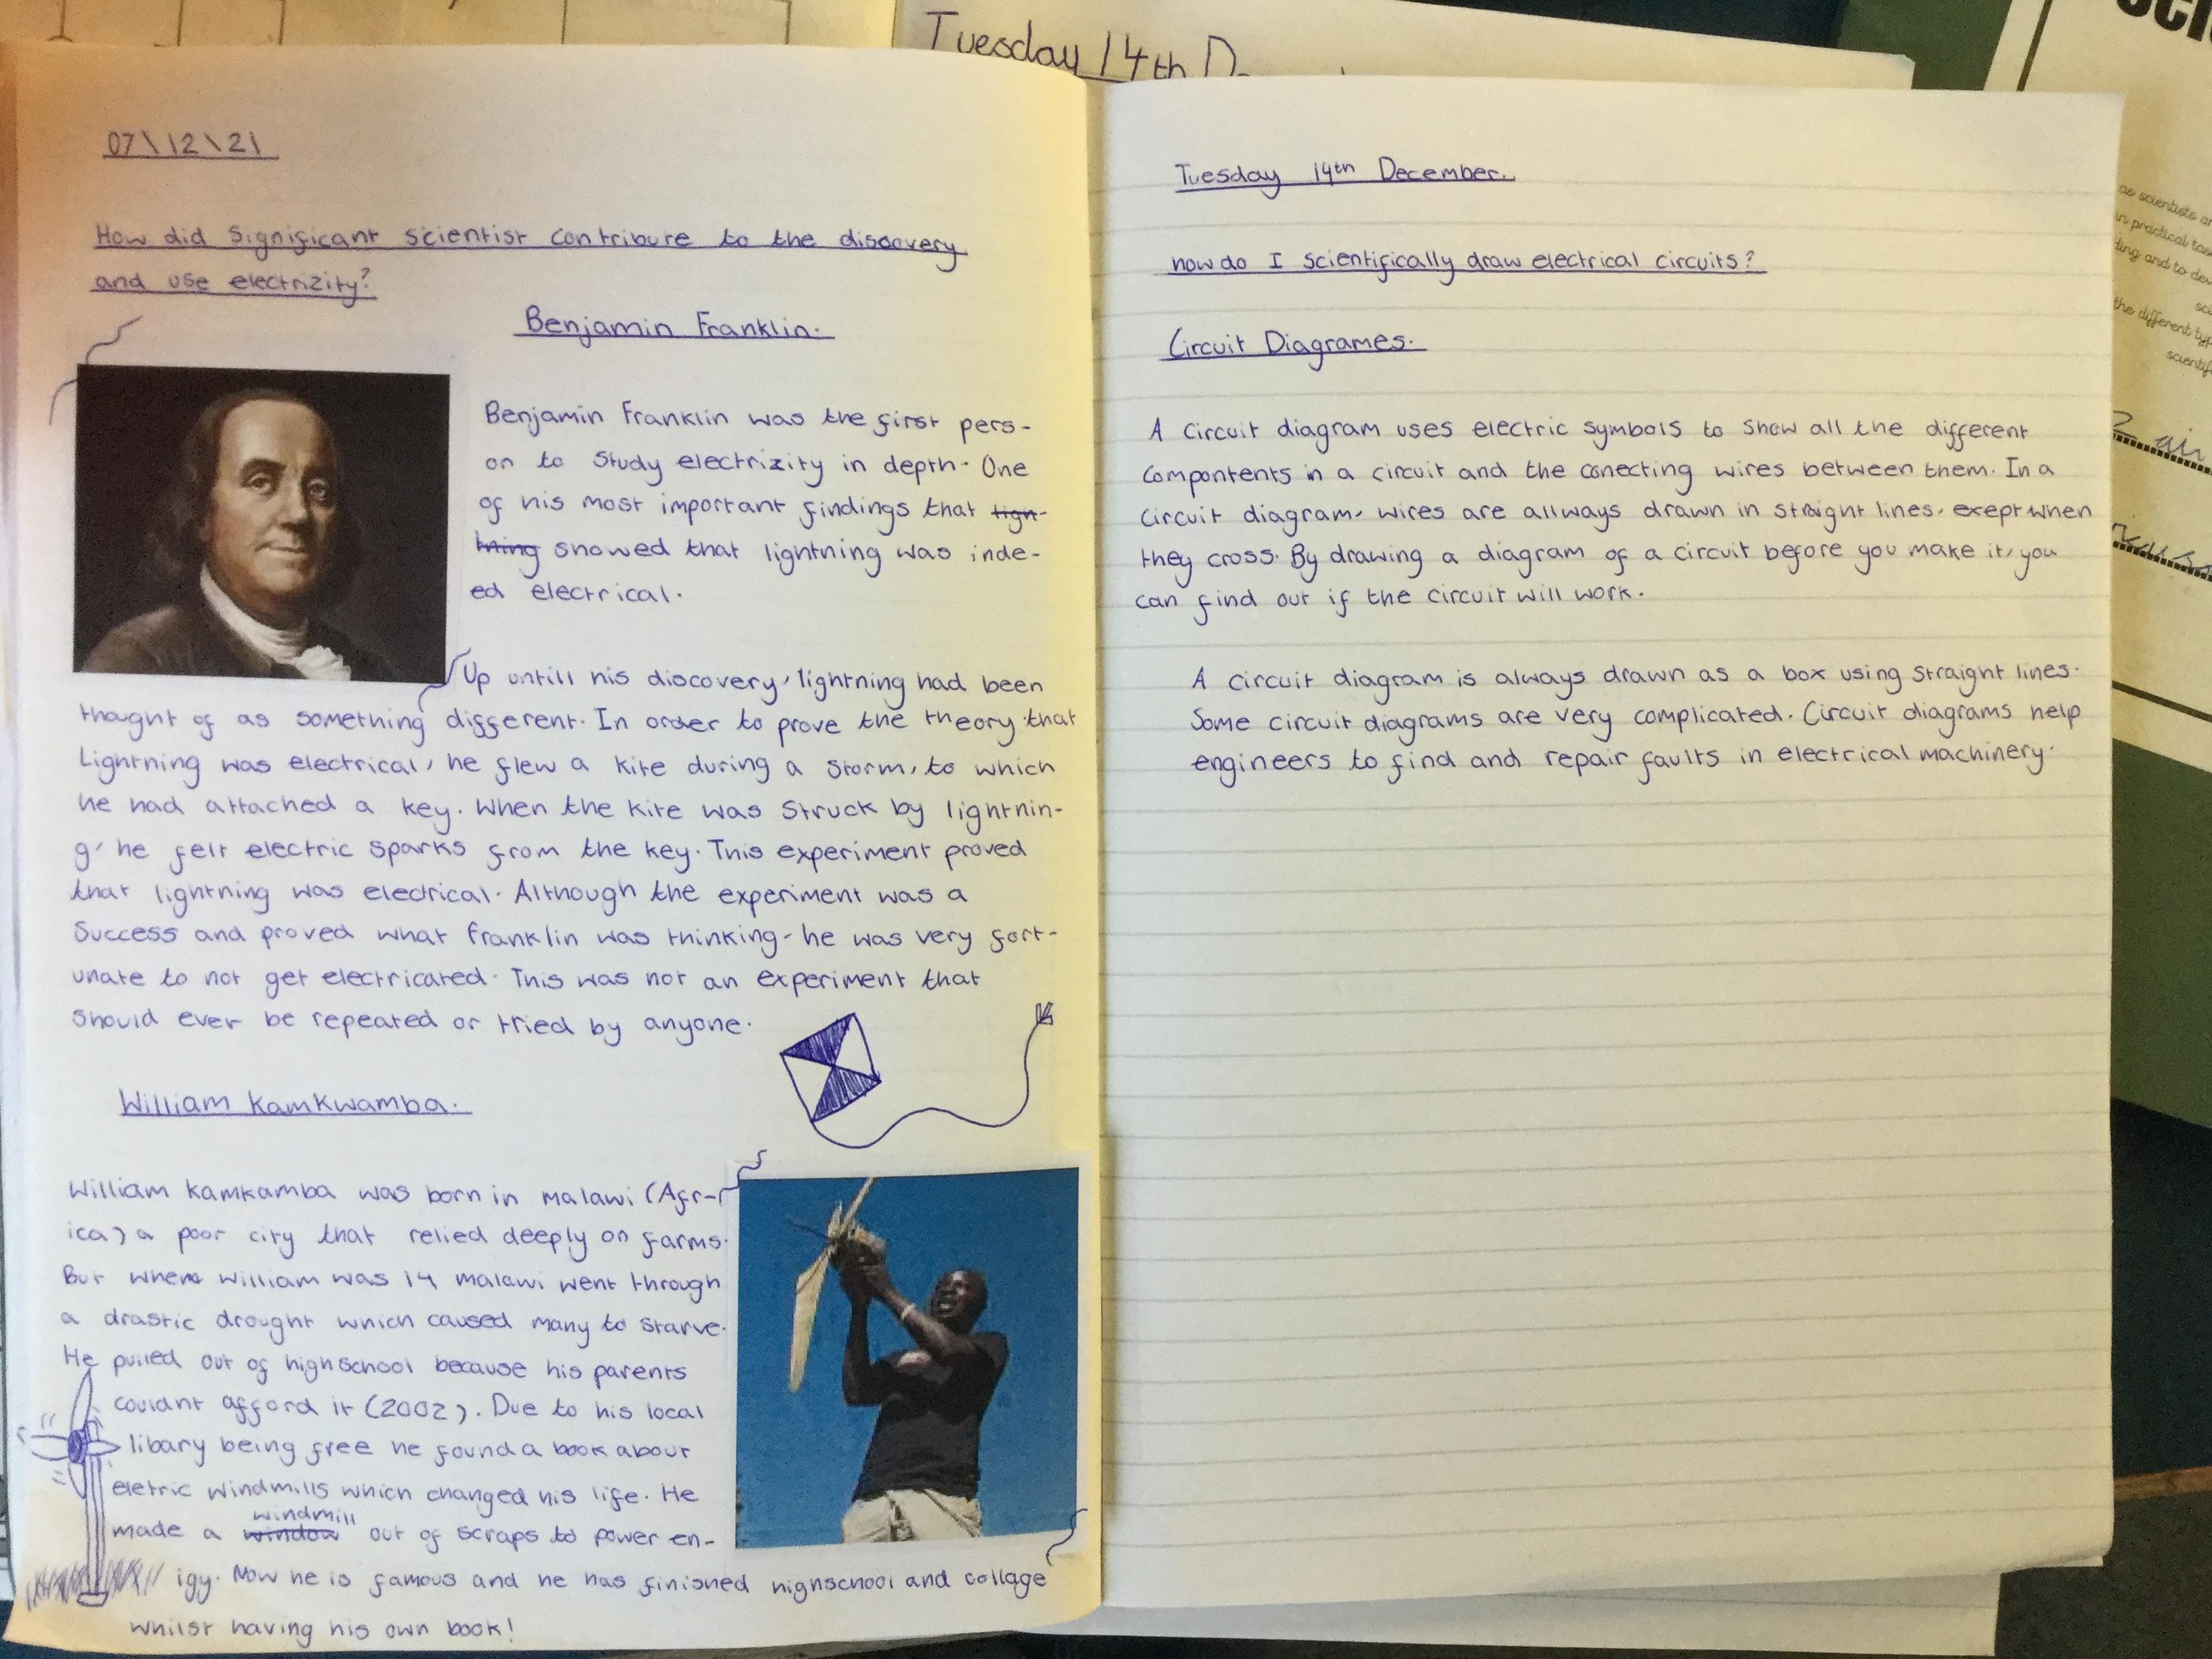 Tuesday 14th D
07\12\21
How did significant scientist contribute to the discovery
and use electrizity?
Benjamin Franklin.
Benjamin Franklin was the first pers-
on to study electrizity in depth. One
of his most important findings that lign-
tning showed that lightning was inde-
ed electrical.
Up untill his discovery, lightning had been
thought of as something different. In order to prove the theory that
Lightning was electrical, he flew a kite during a storm, to which
he had attached a key. When the kite was struck by lightnin-
g, he felt electric sparks from the key. This experiment proved
that lightning was electrical. Although the experiment was a
success and proved what franklin was thinking, he was very fort-
unate to not get electricated. This was not an experiment that
should ever be repeated or tried by anyone.
William Kamkwamba.
William Kamkamba was born in malawi (Afr-
ica) a poor city that relied deeply on farms.
But when William was 14 malawi went through
a drastic drought which caused many to starve.
He pulled out of highschool because his parents
couldnt afford it (2002). Due to his local
libary being free he found a book about
eletric windmills which changed his life. He
windmill
made a window out of scraps to power en-
igy. Now he is famous and he has finished highschool and collage
whilst having his own book!
Tuesday 14th December.
How do I scientifically draw electrical circuits?
Circuit Diagrames.
A circuit diagram uses electric symbols to show all the different
compontents in a circuit and the conecting wires between them. In a
circuit diagram, wires are allways drawn in straight lines, exept when
they cross. By drawing a diagram of a circuit before you make it, you
can find out if the circuit will work.
A circuit diagram is always drawn as a box using straight lines.
Some circuit diagrams are very complicated. Circuit diagrams help
engineers to find and repair faults in electrical machinery.
as scientists
in practical
ding and to
the different